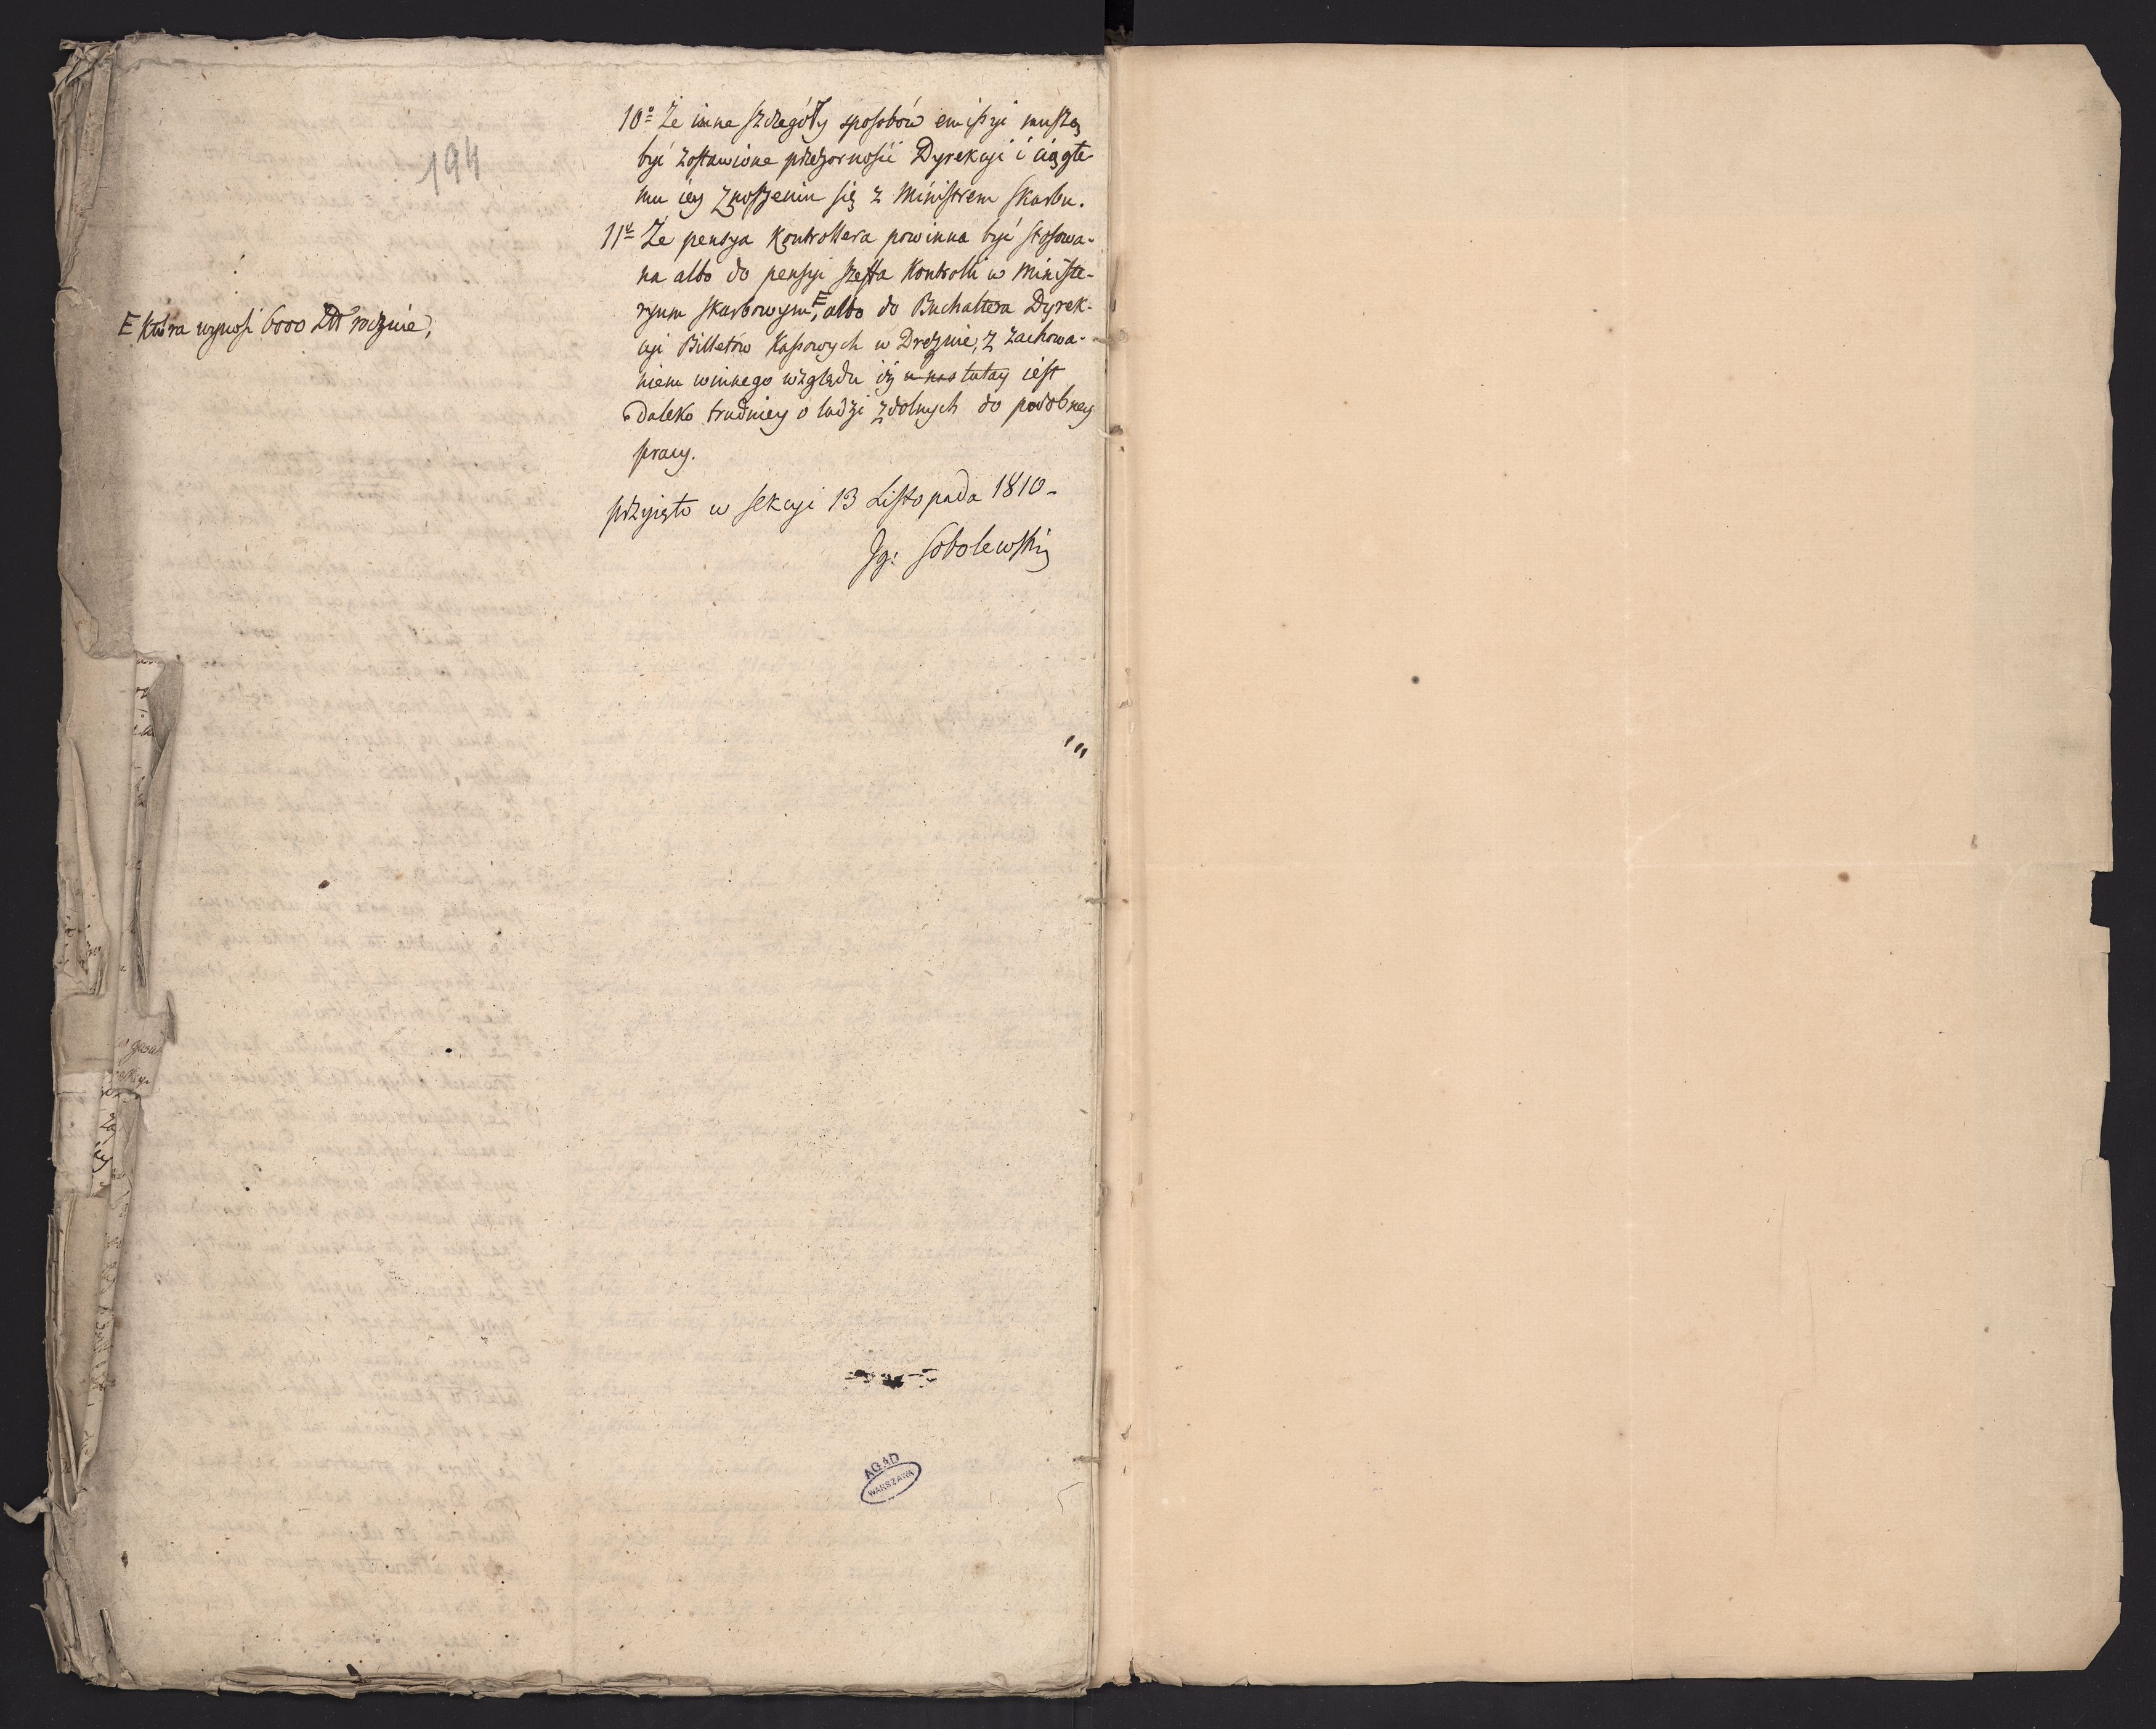 194
10º Że inne szczegóły sposobów emissyi muszą
być zostawione przezorności Dyrekcyi i ciągłe-
mu iey znoszeniu się z Ministrem Skarbu.
11º Że pensya Kontrollera powinna być stosowa-
na albo do pensyi szeffa Kontrolli w Ministe-
ryum skarbowym, E albo do Buchaltera Dyrek-
cyi Billetów Kassowych w Dreznie, z zachowa-
niem winnego względu iż u nas tutay iest
daleko trudniey o ludzi zdolnych do podobney
pracy.
E Która wynosi 6000 Złł rocznie,
przyięto w sekcyi 13 Listopada 1810-
Ig: Sobolewski
AGAD
WARSZAWA